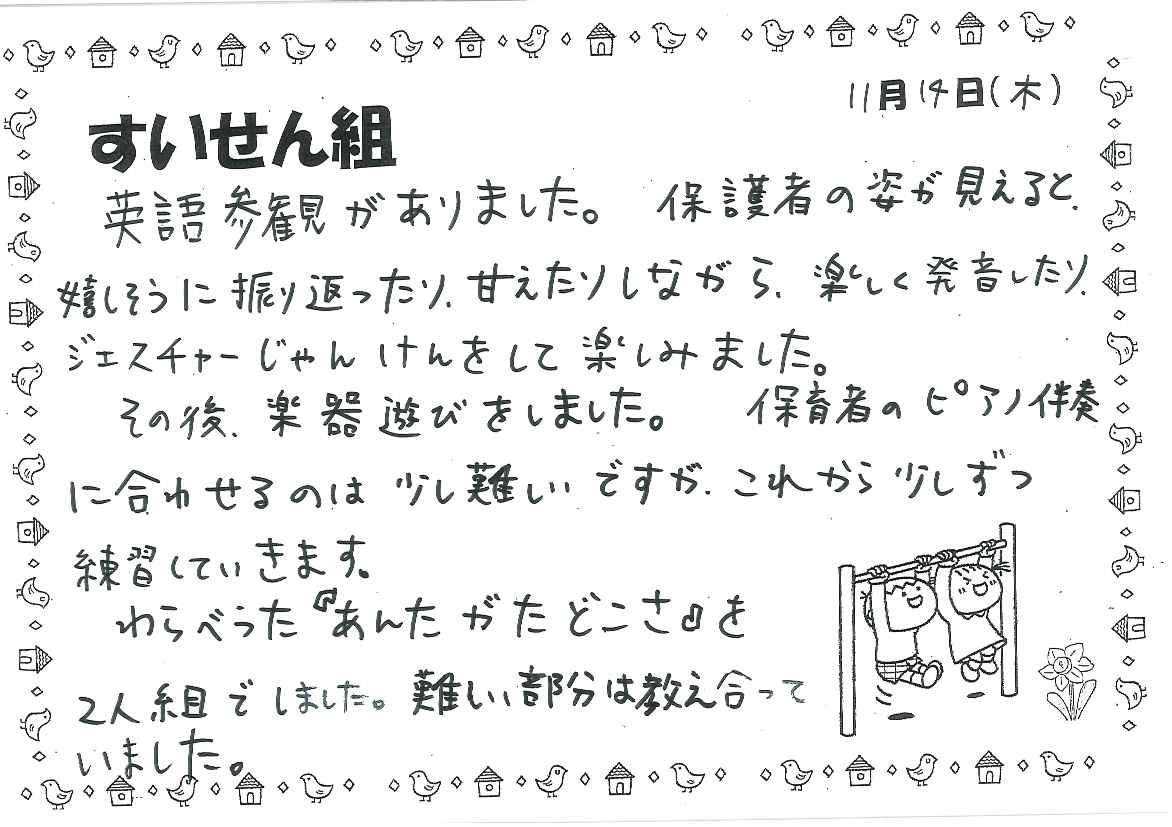 11月14日(木)
すいせん組
英語参観がありました。 保護者の姿が見えると、
嬉しそうに振り返ったり、甘えたりしながら、楽しく発音したり、
ジェスチャーじゃんけんをして楽しみました。
その後、楽器遊びをしました。 保育者のピアノ伴奏
に合わせるのは少し難しいですが、これから少しずつ
練習していきます。
わらべうた『あんたがたどこさ』を
2人組でしました。難しい部分は教え合って
いました。